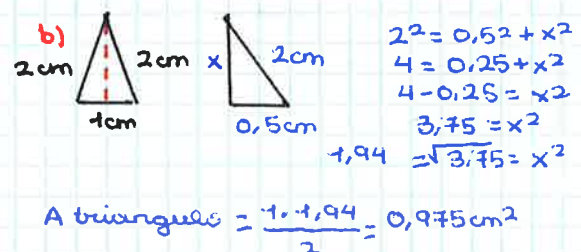 b)
2cm 2cm
1cm
x 2cm
0,5cm
2² = 0,5² + x²
4 = 0,25 + x²
4 - 0,25 = x²
3,75 = x²
1,94 = √3,75 = x²
A triangulo = 1.1,94 / 2 = 0,975cm²